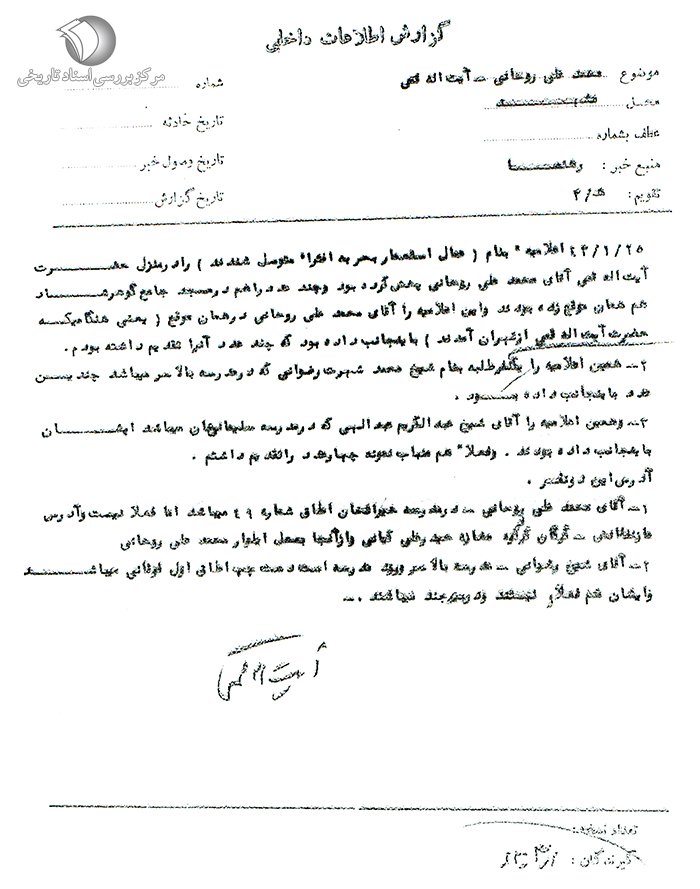 گزارش اطلاعات داخلی
مرکز بررسی اسناد تاریخی
موضوع محمد علی روحانی – آیت اله قمی
شماره
محل مشهد
تاریخ حادثه
عطف بشماره
تاریخ وصول خبر
منبع خبر :
تاریخ گزارش
تقویم :
اعلامیه " بنام ( عمال استعمار بحربه افترا" متوسل شدند ) را در منزل حضرت
آیت اله قمی آقای محمد علی روحانی پخش کرده بود وچند عدد را هم در مسجد جامع گوهرشاد
هم همان موقع زده بودند واین اعلامیه را آقای محمد علی روحانی در همان موقع ( یعنی هنگامیکه
حضرت آیت اله قمی از تهران آمدند ) باینجانب داده بود که چند عدد آنرا تقدیم داشته بودم .
۲– همین اعلامیه را یکنفر طلبه بنام شیخ محمد شهرت رضوانی که در مدرسه بالاسر میباشد چندین
عدد باینجانب داده بود .
۳– وهمین اعلامیه را آقای شیخ عبدالکریم عبدالهی که در مدرسه سلیمانخان میباشد ایشان
باینجانب داده بودند . وفعلا" هم من باب نمونه چهار عدد را تقدیم داشتم .
آدرس این دونفر .
۱– آقای محمد علی روحانی – در مدرسه خیراتخان اطاق شماره ۴۹ میباشد اما فعلا نیست وآدرس
مازندرانش – گرگان مغازه حیدرقلی کیانی وازآنجا بمحل محمد علی روحانی
۲– آقای شیخ رضوانی – مدرسه بالاسر ورود مدرسه است دست چپ اطاق اول فوقانی میباشد
وایشان هم فعلا نیستند ودر بیرجند میباشند .–
آیت اله قمی
تعداد نسخه :
گیرندگان :